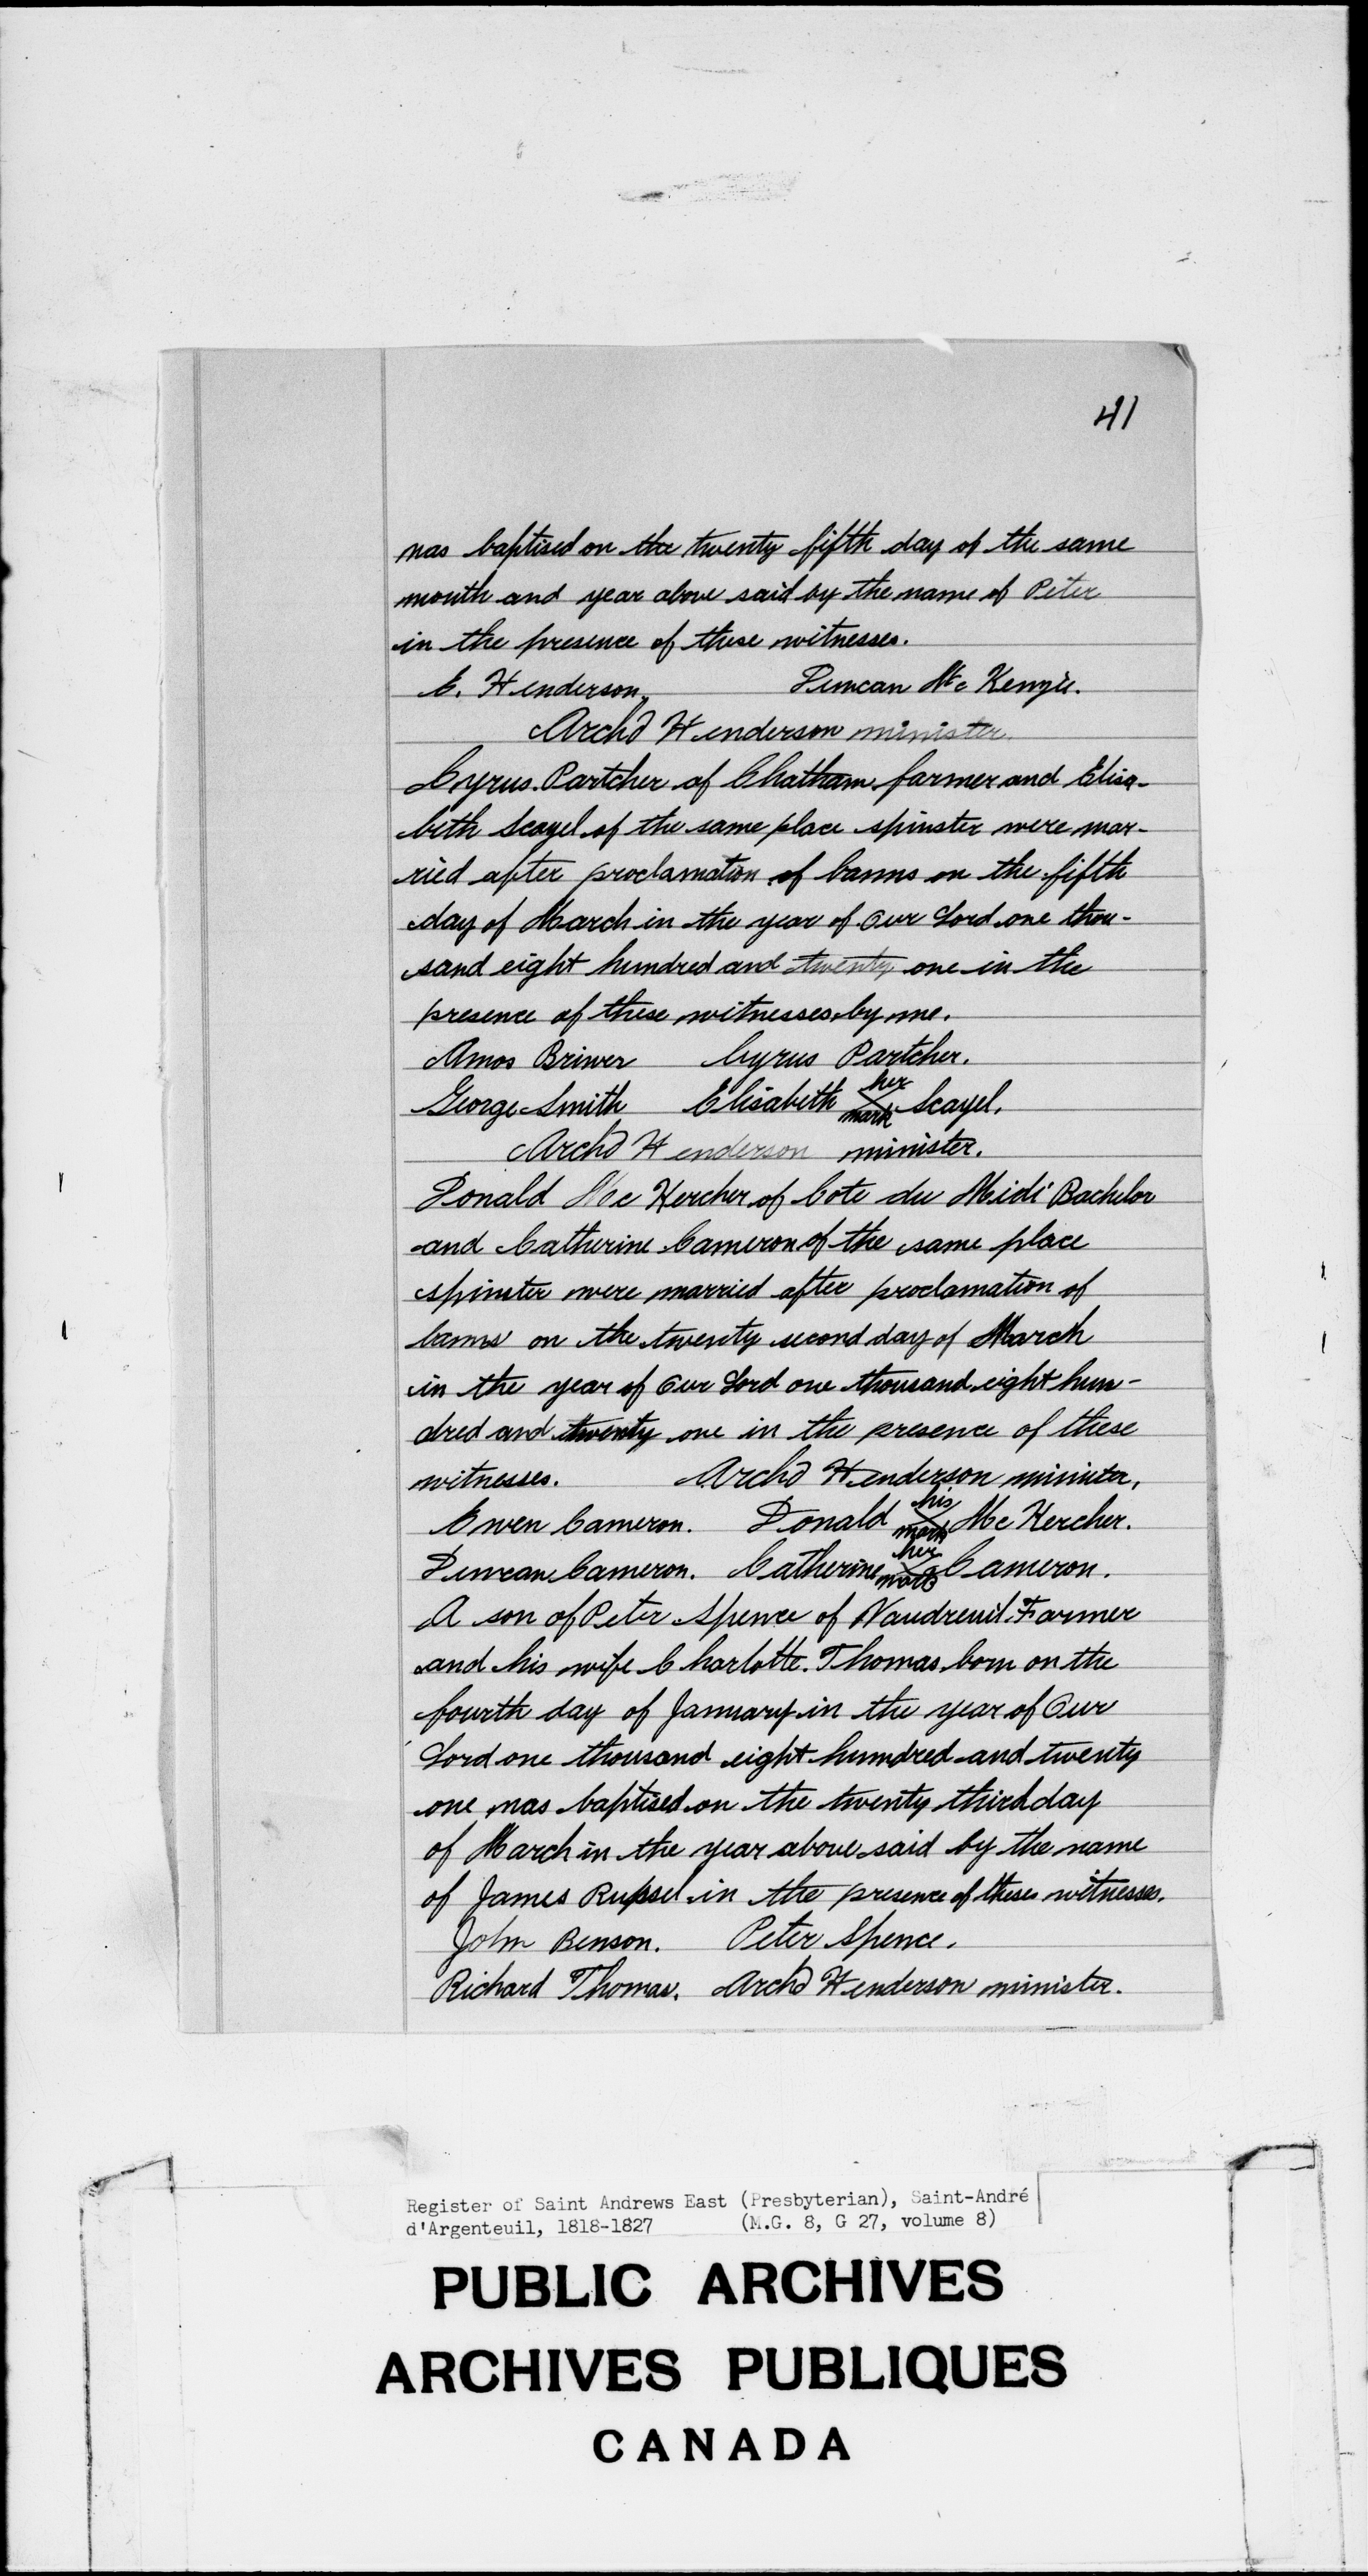 41
was baptised on the twenty fifth day of the same
month and year above said by the name of Peter
in the presence of these witnesses.
C. Henderson, Duncan Mc Kenzie.
Archd Henderson minister.
Cyrus Partcher of Chatham farmer and Elisa-
beth Scayel of the same place spinster were mar-
ried after proclamation of banns on the fifth
day of March in the year of Our Lord one thou-
sand eight hundred and twenty one in the
presence of these witnesses by me.
Amos Briwer Cyrus Partcher.
George Smith Elisabeth her X mark Scayel.
Archd Henderson minister.
Donald Mc Kercher of Cote du Midi Bachelor
and Catherine Cameron of the same place
spinster were married after proclamation of
banns on the twenty second day of March
in the year of Our Lord one thousand eight hun-
dred and twenty one in the presence of these
witnesses. Archd Henderson minister.
Ewen Cameron. Donald his X mark Mc Kercher.
Duncan Cameron. Catherine her X mark Cameron.
A son of Peter Spence of Vaudreuil Farmer
and his wife Charlotte Thomas born on the
fourth day of January in the year of Our
Lord one thousand eight hundred and twenty
one was baptised on the twenty third day
of March in the year above said by the name
of James Russel in the presence of these witnesses.
John Benson. Peter Spence.
Richard Thomas. Archd Henderson minister.
Register of Saint Andrews East (Presbyterian), Saint-André
d'Argenteuil, 1818-1827 (M.G. 8, G 27, volume 8)
PUBLIC ARCHIVES
ARCHIVES PUBLIQUES
CANADA